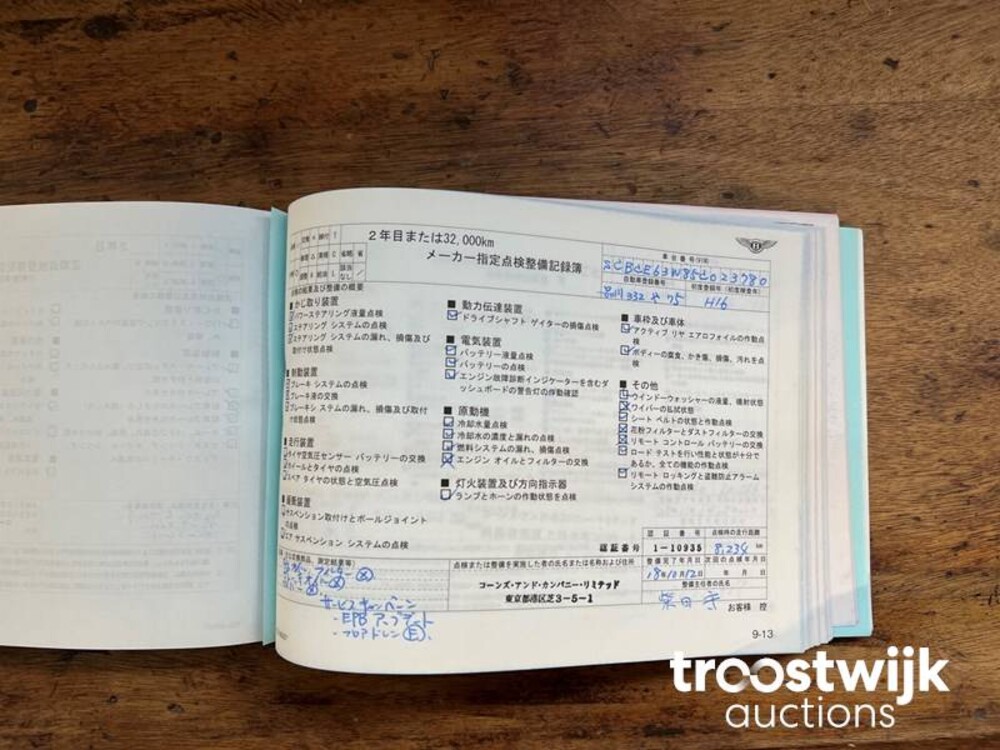 2年目または32,000km
メーカー指定点検整備記録簿
車台番号(VIN)
SCBCE63W85C023780
自動車登録番号
初度登録年(初度検査年)
品川 332 75
H16
点検の結果及び整備の概要
■ かじ取り装置
パワーステアリング液量点検
ステアリング システムの点検
ステアリング システムの漏れ、損傷及び
取付け状態点検
■ 制動装置
ブレーキ システムの点検
ブレーキ液の交換
ブレーキシ ステムの漏れ、損傷及び取付
け状態点検
■ 走行装置
タイヤ空気圧センサー バッテリーの交換
ホイールとタイヤの点検
スペア タイヤの状態と空気圧点検
■ 緩衝装置
サスペンション取付けとボールジョイント
の点検
エア サスペンション システムの点検
■ 動力伝達装置
ドライブシャフト ゲイターの損傷点検
■ 電気装置
バッテリー液量点検
バッテリーの点検
エンジン故障診断インジケーターを含むダ
ッシュボードの警告灯の作動確認
■ 原動機
冷却水量点検
冷却水の濃度と漏れの点検
燃料システムの漏れ、損傷点検
エンジン オイルとフィルターの交換
■ 灯火装置及び方向指示器
ランプとホーンの作動状態を点検
■ 車枠及び車体
アクティブ リヤ エアロフォイルの作動点
検
ボディーの腐食、かき傷、損傷、汚れを点
検
■ その他
ウインドーウォッシャーの液量、噴射状態
ワイパーの払拭状態
シート ベルトの状態と作動点検
花粉フィルターとダストフィルターの交換
リモート コントロール バッテリーの交換
ロード テストを行い性能と状態が十分で
あるか、全ての機能の作動点検
リモート ロッキングと盗難防止アラーム
システムの作動点検
サービスキャンペーン
・EPB アップデート
・フロアドレン(E).
点検または整備を実施した者の氏名または名称および住所
コーンズ・アンド・カンパニー・リミテッド
東京都港区芝3-5-1
認証番号
認証番号
1-10935
点検時の走行距離
8,234 km
整備完了年月日
次回の点検年月日
18年10月12日
年 月 日
整備主任者の氏名
お客様 控
9-13
troostwijk
auctions